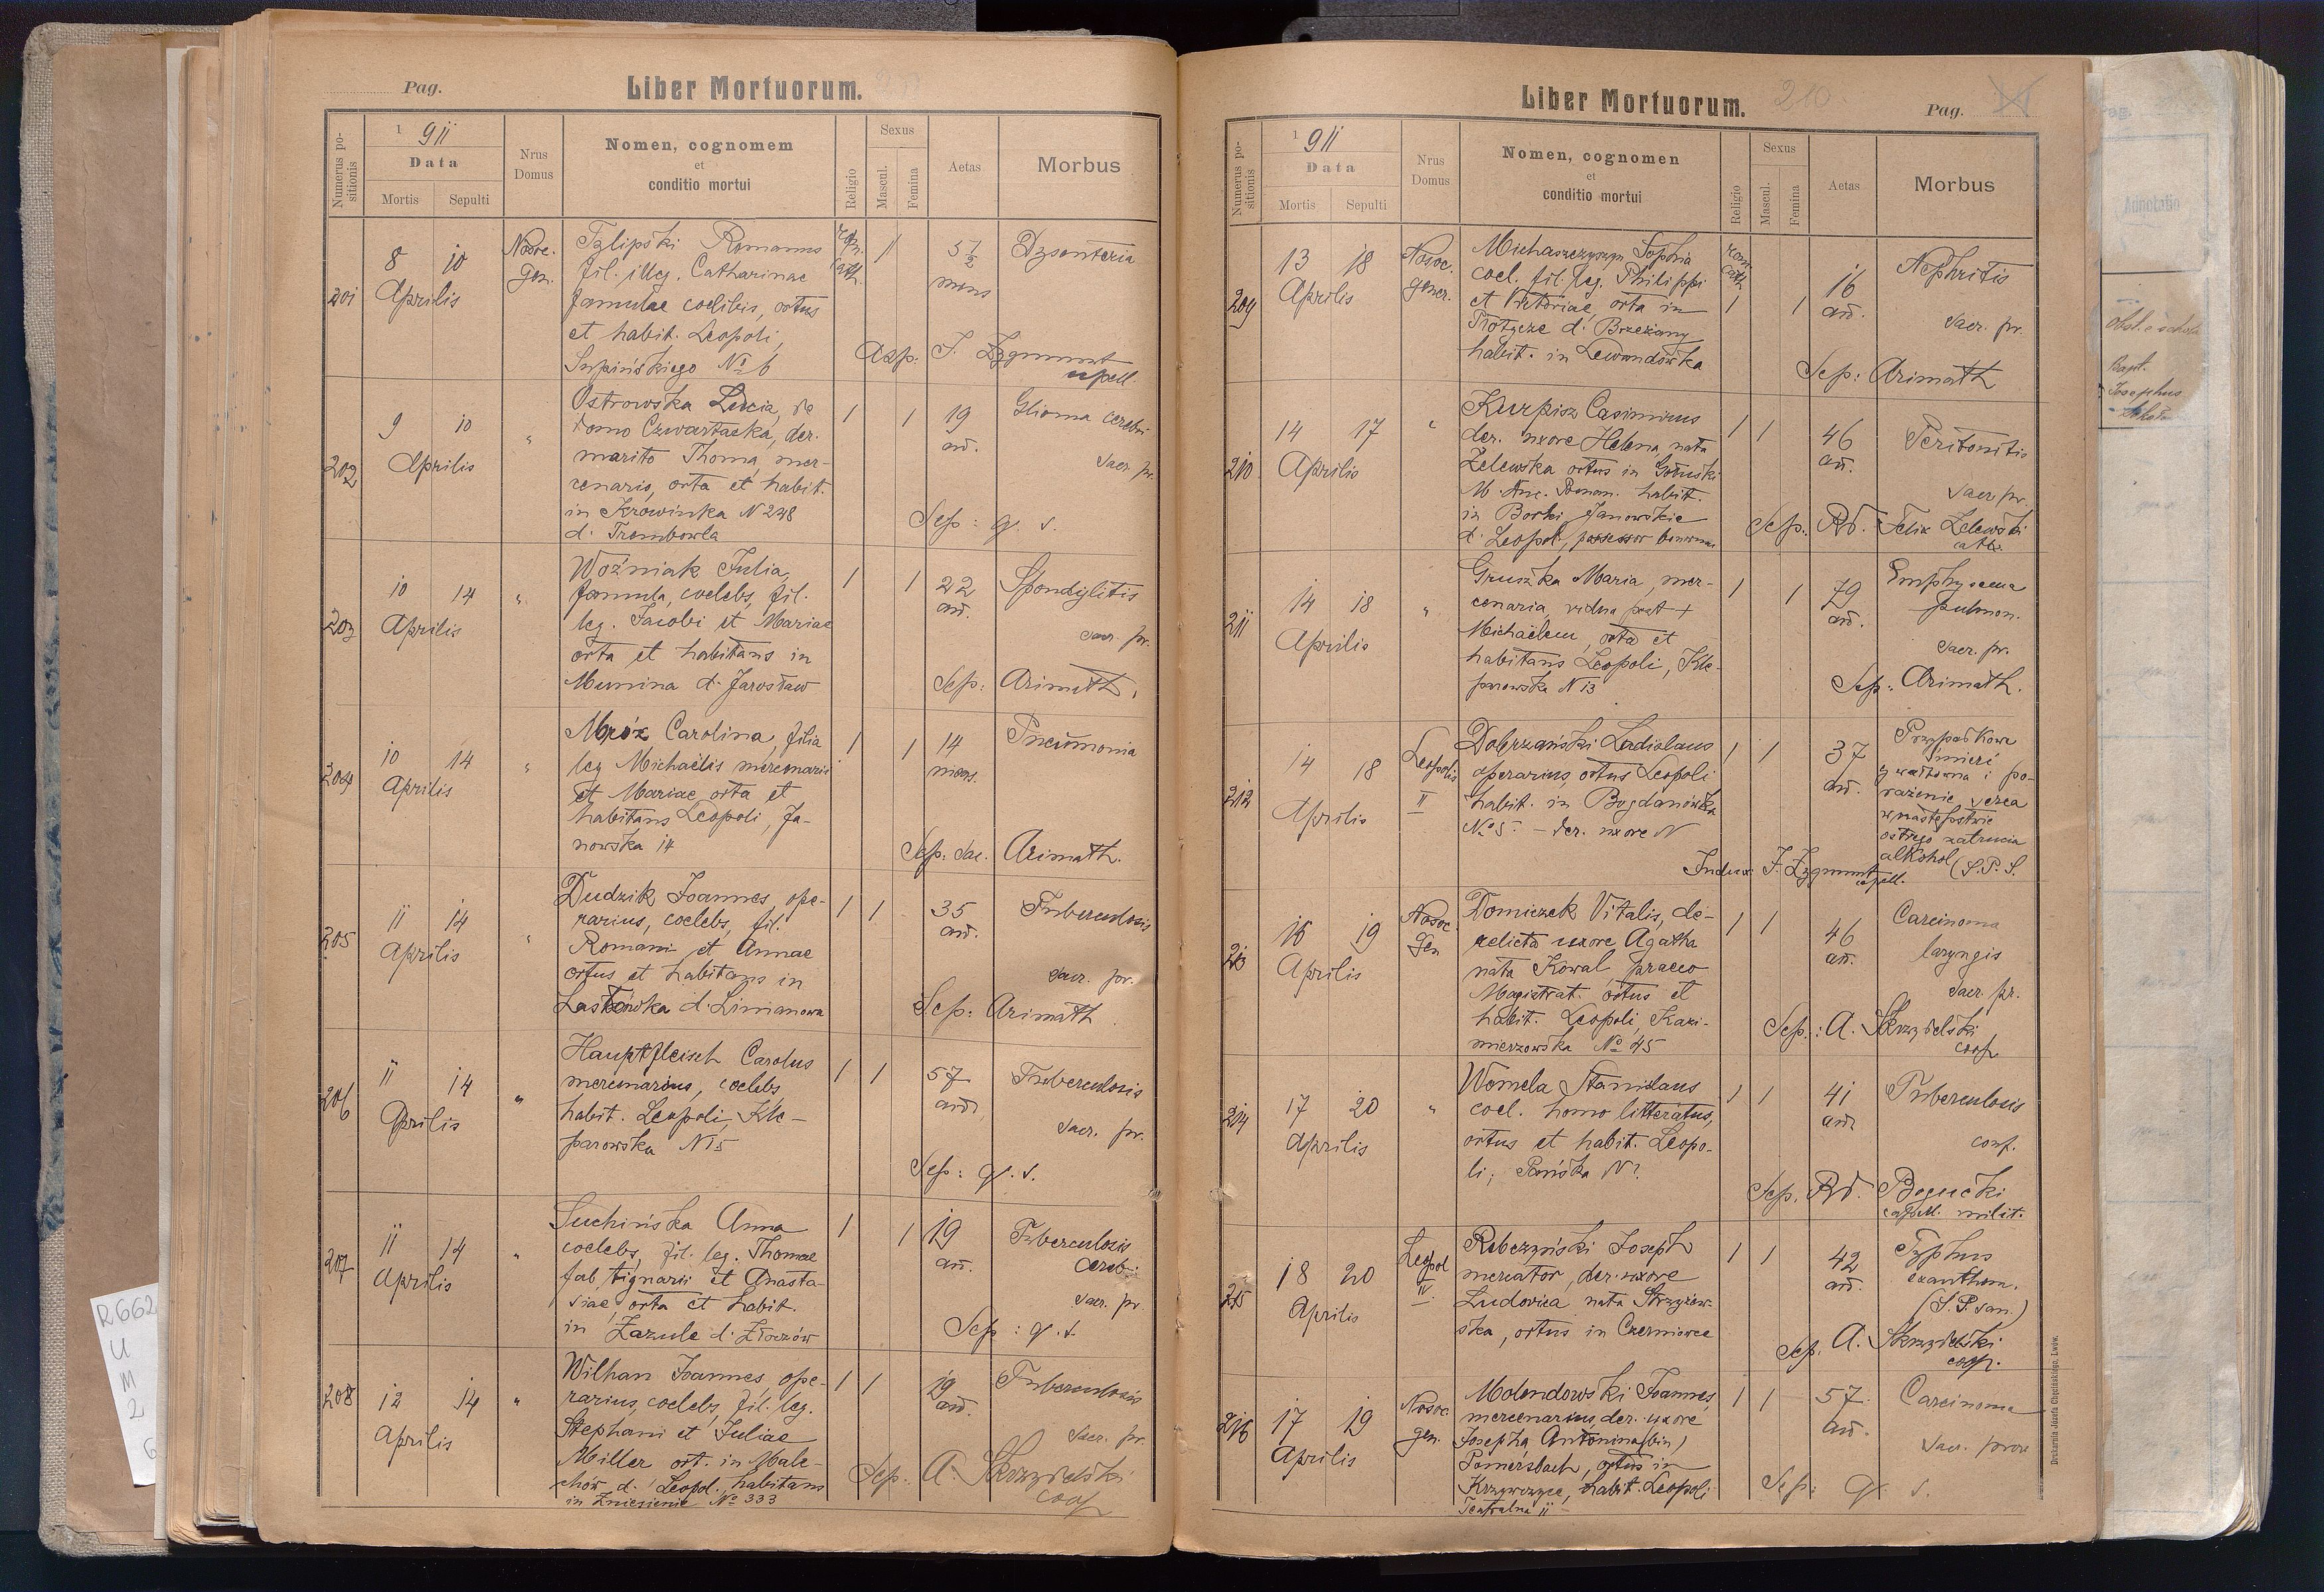 Pag.
Liber Mortuorum.
Numerus positionis
1911
Data
Mortis
Sepulti
Nrus Domus
Nomen, cognomem
et
conditio mortui
Religio
Sexus
Mascul.
Femina
Aetas
Morbus
201
8 10
Aprilis
Nosoc. gen.
Romanus
fil. illeg. Catharinae
famulae coelibis, ortus
et habit. Leopoli,
Supińskiego № 6
rom. cath.
1
5 1/2
mens
Dysenteria
Asp: J. Zygmunt
capell.
202
9 10
Aprilis
"
Ostrowska Lucia, de
domo Czwartacka, der.
marito Thoma, mer-
cenario, orta et habit.
in Krowinka N 248
d. Trembowla
1 1
19
an.
Glioma cerebri
sacr. pr.
Sep: q. s.
203
10 14
Aprilis
"
Woźniak Julia,
famula, coelebs, fil.
leg. Jacobi et Mariae
orta et habitans in
Munina d. Jarosław
1 1
22
an.
Spondylitis
sacr. pr.
Sep: Arimath.
204
10 14
Aprilis
"
Mróz Carolina, filia
leg Michaëlis mercenarii
et Mariae, orta et
habitans Leopoli, Ja-
nowska 14
1 1
14
mens.
Pneumonia
Sep: Sac. Arimath.
205
11 14
Aprilis
"
Dudzik Joannes, ope-
rarius, coelebs, fil.
Romani et Annae
ortus et habitans in
d. Limanowa
1 1
35
an.
Tuberculosis
sacr. pr.
Sep: Arimath
206
11 14
Aprilis
"
Hauptfleisch Carolus
mercenarius, coelebs,
habit. Leopoli, Kle-
parowska N 15
1 1
57
an.
Tuberculosis
sacr. pr.
Sep: q. s.
207
11 14
Aprilis
"
Suchińska Anna
coelebs, fil. leg. Thomae
fab tignarii et Anasta-
siae, orta et habit.
in Zazule d. Złoczów
1 1
19
an.
Tuberculosis
cerebri
sacr. pr.
Sep: q. s.
208
12 14
Aprilis
"
Wilhan Joannes, ope-
rarius, coelebs, fil. leg.
Stephani et Juliae
Miller ort. in Male-
chów d. Leopol., habitans
in Zniesienie № 333
1 1
19
an.
Tuberculosis
sacr. pr.
Sep: A. Skrzydelski
coop
Liber Mortuorum.
210.
Pag.
Numerus positionis
1911
Data
Mortis
Sepulti
Nrus Domus
Nomen, cognomen
et
conditio mortui
Religio
Sexus
Mascul.
Femina
Aetas
Morbus
209
13 18
Aprilis
Nosoc. gener.
Michaszczyszyn Sophia
coel. fil. leg. Philippi
et Victoriae, orta in
d. Brzeżany
habit. in Lewandówka
rom cath
1 1
16
an.
Nephritis
sacr. pr.
Sep: Arimath
210
14 17
Aprilis
"
Kurpisz Casimirus
der. uxore Helena nata
Zelewska ortus in
habit.
in Borki Janowskie
d. Leopol, possessor bonorum
1 1
46
an.
Peritonitis
sacr pr.
Sep. Rd. Felix Zelewski
cath.
211
14 18
Aprilis
"
Gruszka Maria, mer-
cenaria, vidua post +
Michaëlem, orta et
habitans Leopoli, Kle-
parowska N 13
1 1
79
an.
Emphysema
pulmon.
sacr. pr.
Sep: Arimath.
212
14 18
Aprilis
Leopolis II
Dobrzański Ladislaus
operarius, ortus Leopoli
habit. in Bogdanówka
№ 5. - der. uxore N
1 1
37
an.
Przypadkowa
śmierć
gwałtowna i po-
rażenie serca
w następstwie
ostrego zatrucia
alkohol (S.P.S.
Indux: J. Zygmunt
capell.
213
16 19
Aprilis
Nosoc Gen
Domiczek Vitalis, de-
relicta uxore Agatha
nata Kowal, praeco
Magistrat. ortus et
habit. Leopoli, Kazi-
mierzowska № 45
1 1
46
an.
Carcinoma
laryngis
sacr. pr.
Sep.: A. Skrzydelski
coop
214
17 20
Aprilis
"
Womela Stanislaus
coel. homo litteratus,
ortus et habit. Leopo-
li, Pańska N?
1 1
41
an.
Tuberculosis
conf.
Sep. Rd. Bogucki
capell. milit.
215
18 20
Aprilis
Leopol IV.
Rebczyński Joseph
mercator, der. uxore
Ludovica nata Strzyżew-
ska, ortus in Czerniowce
1 1
42
an.
Typhus
exanthem.
(S. P. san.)
Sep. A. Skrzydelski
coop.
216
17 19
Aprilis
Nosoc gen.
Molendowski Joannes,
mercenarius, der. uxore
Josepha Antonina (bin)
Pomersbach, ortus in
Krzywczyce, habit. Leopoli
Teatralna 11
1 1
57
an.
Carcinoma
sacr. prov
Sep: q. s.
Drukarnia Józefa Chęcińskiego, Lwów.
Annotatio
Bapt.
Josephus
R662
U
M
2
6